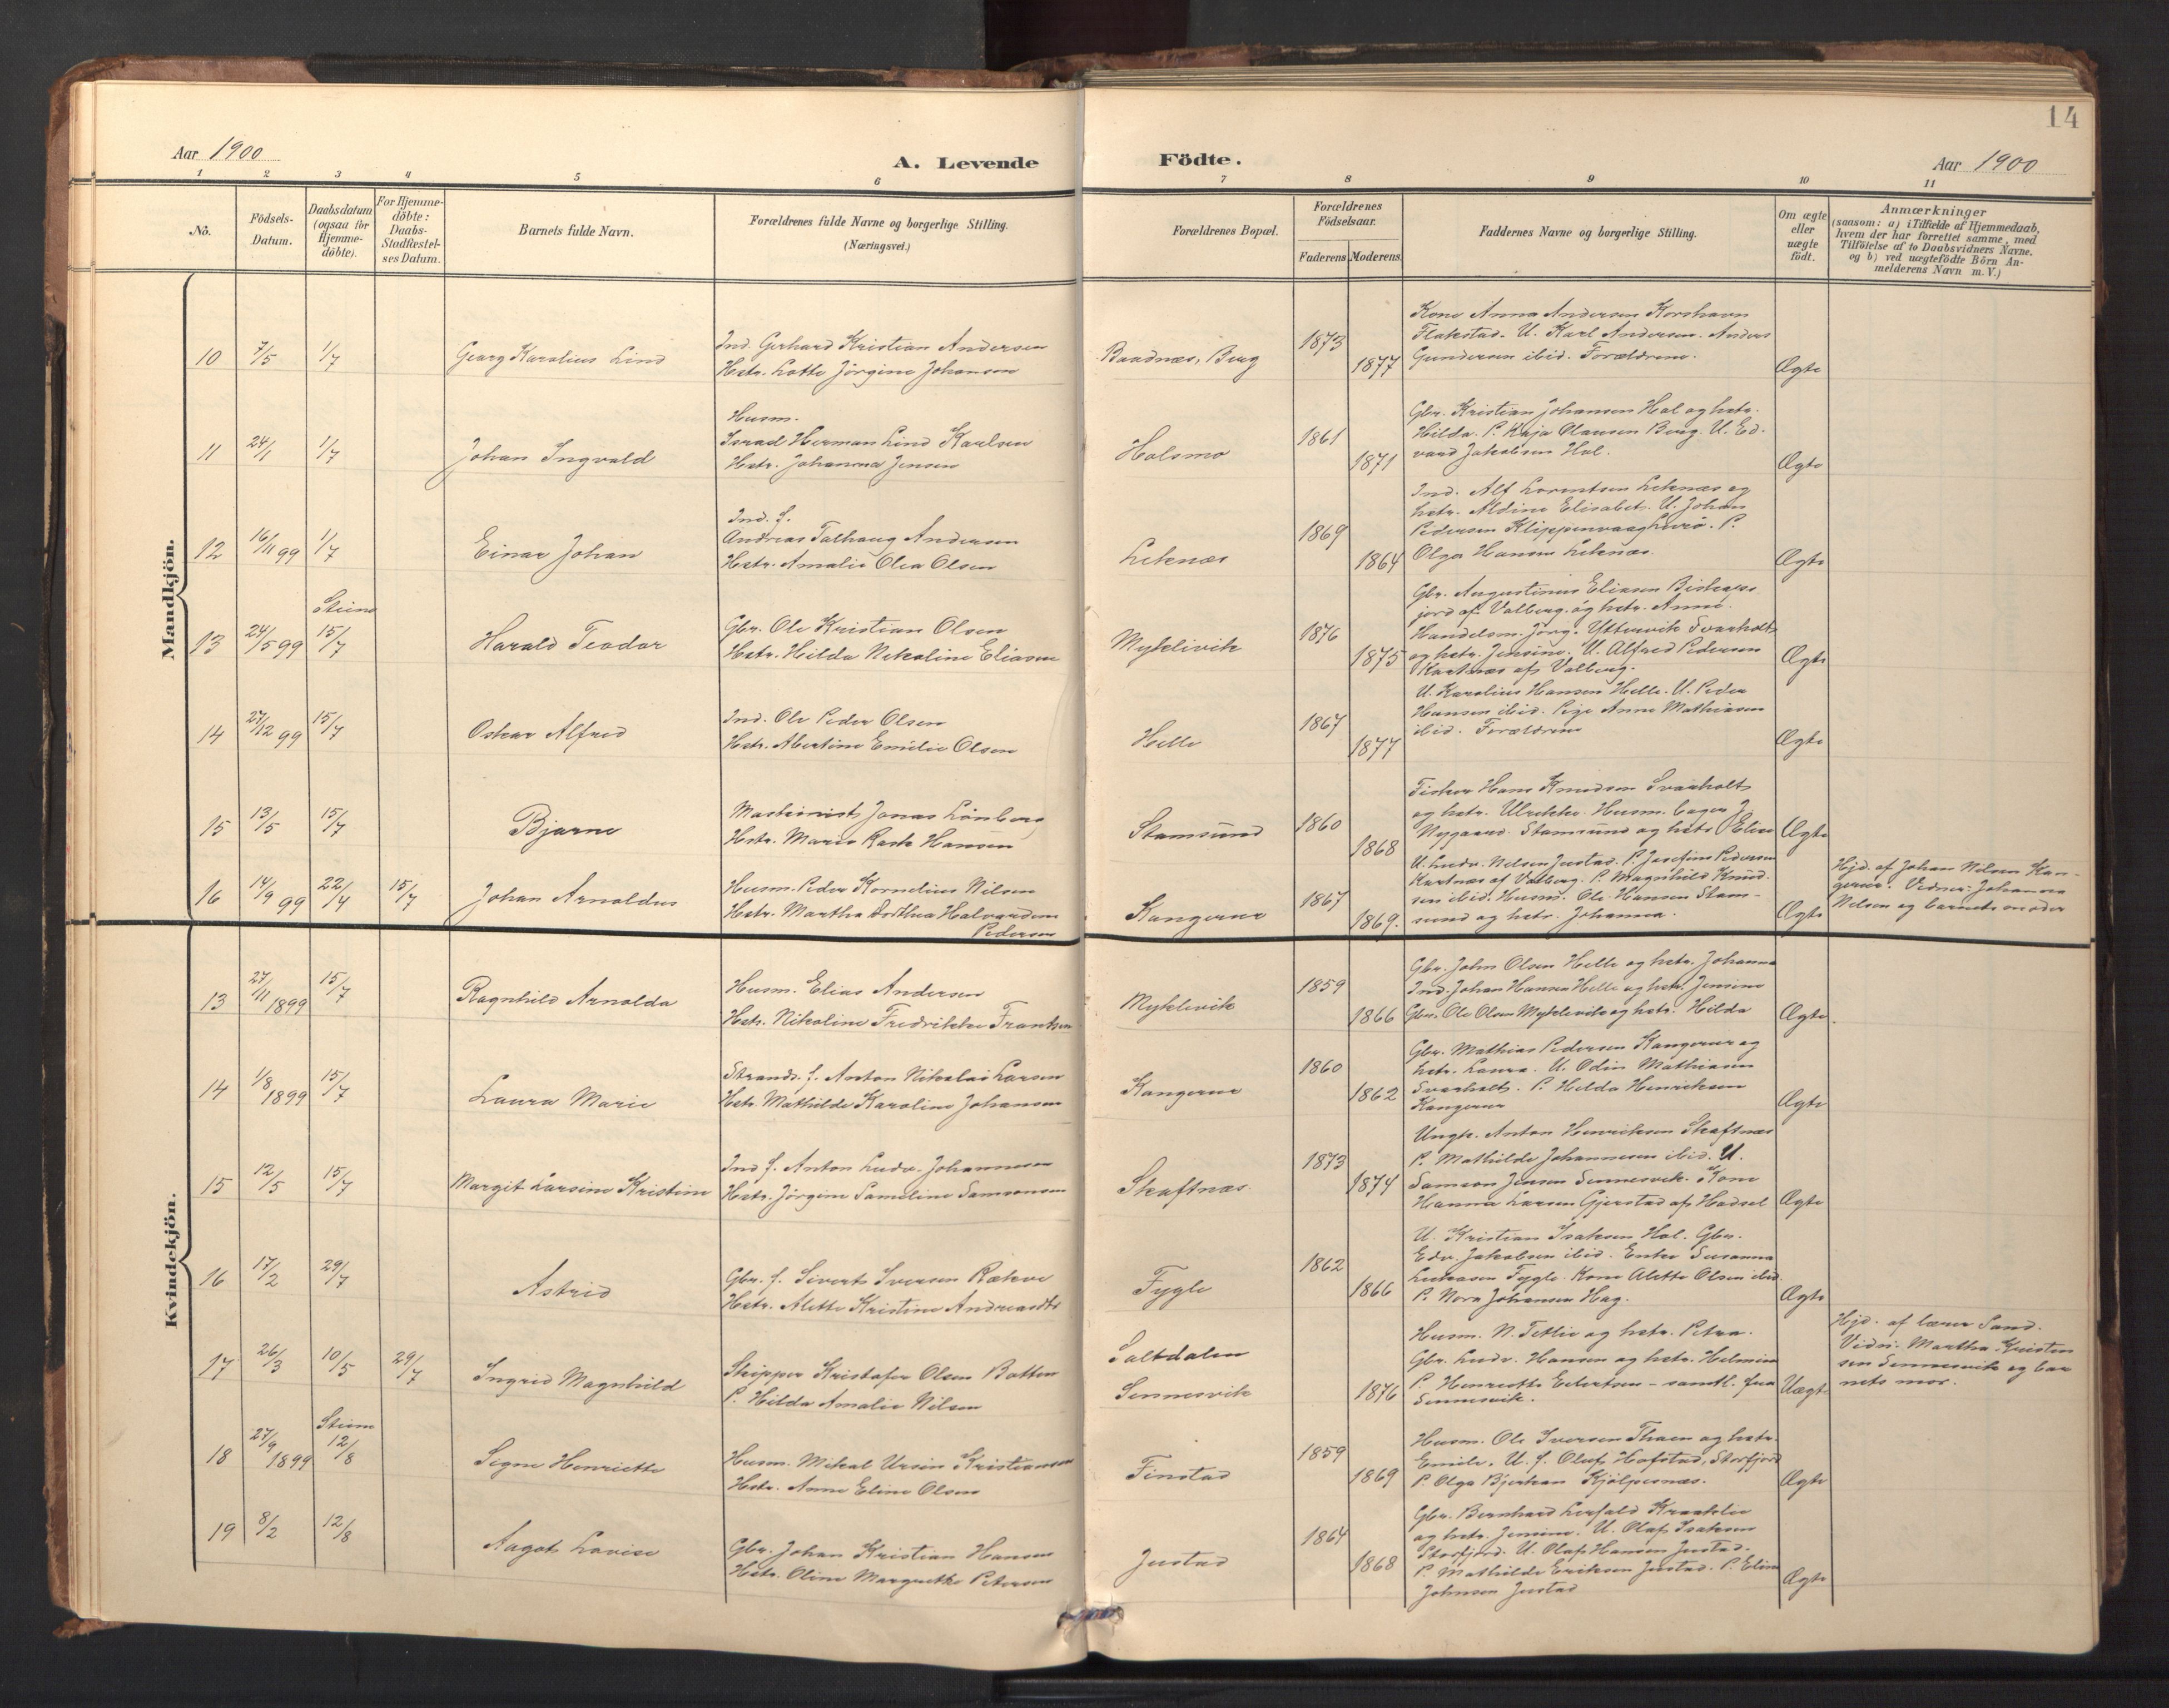 14
Aar 1900
A. Levende Födte.
Aar 1900
1 2 3 4 5 6 7 8 9 10 11
No.
Födsels-
Datum.
Daabsdatum
(ogsaa for
Hjemme-
döbte).
For Hjemme-
döbte:
Daabs-
Stadfæstel-
ses Datum.
Barnets fulde Navn.
Forældrenes fulde Navne og borgerlige Stilling.
(Næringsvei.)
Forældrenes Bopæl.
Forældrenes
Födselsaar.
Faderens Moderens
Faddernes Navne og borgerlige Stilling.
Om ægte
eller
uægte
født.
Anmærkninger
(saasom: a) i Tilfælde af Hjemmedaab,
hvem der har forrettet samme, med
Tilföielse af to Daabsvidners Navne.
og b) ved uægtefödte Börn An-
melderens Navn m. V.)
Mandkjön.
10 7/5 1/7 Georg Karolius Lind
Ind. Gerhard Kristian Andersen
Hstr. Lotte Jörgine Johansen
Baadnæs, Burg
1873
1877
Kone Anna Andersen Korshavn
Flakstad. U. Karl Andersen. Anders
Gundersen ibid. Forældrene.
Ægte
11 24/1 1/7 Johan Ingvald
Husm.
Israel Herman Lind Karlsen
Hstr. Johanna Jensen
Holsmo
1861
1871
Gbr. Kristian Johansen Hol og hstr.
Hilda. P. Kaja Olausen Burg. U. Ed-
vard Jakobsen Hol.
Ægte
12 16/11 99 1/7 Einar Johan
Ind. f.
Andreas Talhaug Andersen
Hstr. Amalie Olea Olsen
Leknæs
1869
1864
Ind. Alf Lorentsen Leknæs og
hstr. Aldine Elisabet. U. Johan
Pedersen Klippenvaag Lurö. P.
Olga Hansen Leknæs.
Ægte
13 24/5 99 Steine 15/7 Harald Teodor
Gbr. Ole Kristian Olsen
Hstr. Hilda Nikoline Eliasen
Myklivik
1876
1875
Gbr. Augustinus Eliasen Biskops
jord af Valberg og hstr. Anne.
Handelsm. Jörg. Yttervik Svarholt
og hstr. Jensine. U. Alfred Pedersen
Kartnæs af Valberg.
Ægte
14 27/12 99 15/7 Oskar Alfred
Ind. Ole Peder Olsen
Hstr. Abertine Emilie Olsen
Helle
1867
1877
U. Karolius Hansen Helle. U. Peder
Hansen ibid. Pige Anne Mathiasen
ibid. Forældrene
Ægte
15 13/5 15/7 Bjarne
Maskinist Jonas Lönberg
Hstr. Marie Rask Hansen
Stamsund
1860
1868
Fisker Hans Knudsen Svarholt
og hstr. Ulrikke. Husm.
Nygaard Stamsund og hstr. Elise
Ægte
16 14/9 99 22/4 15/7 Johan Arnoldus
Husm. Peder Kornelius Nilsen
Hstr. Martha Dorthea Halvardine
Pedersen
Kangerur
1867
1869.
U. Ludv. Nelsen Justad. P. Josefine Pedersen
Kartnæs af Valberg. P. Magnhild Knud-
sen ibid. Husm. Ole Hansen Stam-
sund og hstr. Johanna.
Ægte
Hjd. af Johan Nilsen Kan-
gerur. Vidner: Johanna
Nilsen og barnets moder
Kvindekjön.
13 27/11 1899 15/7 Ragnhild Arnolda
Husm. Elias Andersen
Hstr. Nikoline Fredrikke Frantsen
Myklevik
1859
1866
Gbr. John Olsen Helle og hstr. Johanna
Ind. Johan Hansen Helle og hstr. Jensine
Gbr. Ole Olsen Myklevik og hstr. Hilda
Ægte.
14 1/8 1899 15/7 Laura Marie
Strands. f. Anton Nikolai Larsen
Hstr. Mathilde Karoline Johansen
Kangerur
1860
1862
Gbr. Mathias Pedersen Kangerur og
hstr. Laura. U. Odin Mathiasen
Svarholt. P. Hilda Henriksen
Kangerur
Ægte
15 12/5 15/7 Margit Larsine Kristine
Ind. f. Anton Ludv. Johannesen
Hstr. Jörgine Pameline Samsonsen
Skaftnæs
1873
1874
Ungk. Anton Henriksen Skaftnæs
P. Mathilde Johannesen ibid. U.
Samson Jensen Sennesvik. Kone
Hanna Larsen Gjerstad af Hadsel
Ægte
16 17/2 29/7 Astrid
Gbr. f. Siverts Iversen Rækve
Hstr. Alette Kristine Andreasdtr
Fygle
1862
1866
U. Kristian Isaksen Hol. Gbr.
Edv. Jakobsen ibid. Enke Susanna
Lukasen Fygle. Kone Alette Olsen ibid.
P. Nora Johansen Hag.
Ægte
17 26/3 10/5 29/7 Ingrid Magnhild
Skipper Kristofer Olsen Botten
P. Hilda Amalie Nilsen
Saltdalen
Sennesvik
1876
Husm. N. Tetlie og hstr. Petra.
Gbr. Ludv. Hansen og hstr. Helmine
P. Henriette Edvartsen – samtl. fra
Sennesvik.
Uægt.
Hjd. af lærer Sand.
Vidn. Martha Kristen
sen Sennesvik og bar
nets mor.
18 27/9 1899 Steine 12/8 Signe Henriette
Husm. Mikal Ursin Kristiansen
Hstr. Anne Eline Olsen
Finstad
1859
1869
Husm. Ole Iversen Thuen og hstr.
Emilie. U. f. Oluf Hofstad, Storfjord
P. Olga Bjerkan Kjölpesnæs.
Ægte
19 8/2 12/8 Aagot Lovise
Gbr. Johan Kristian Hansen
Hstr. Oline Margrethe Petersen
Justad
1864
1868
Gbr. Bernhard Lerfald Kraaklie
og hstr. Jensine. U. Olaf Isaksen
Storfjord. U. Olaf Hansen Justad.
P. Mathilde Eriksen Justad. P. Eline
Johnsen Justad
Ægte